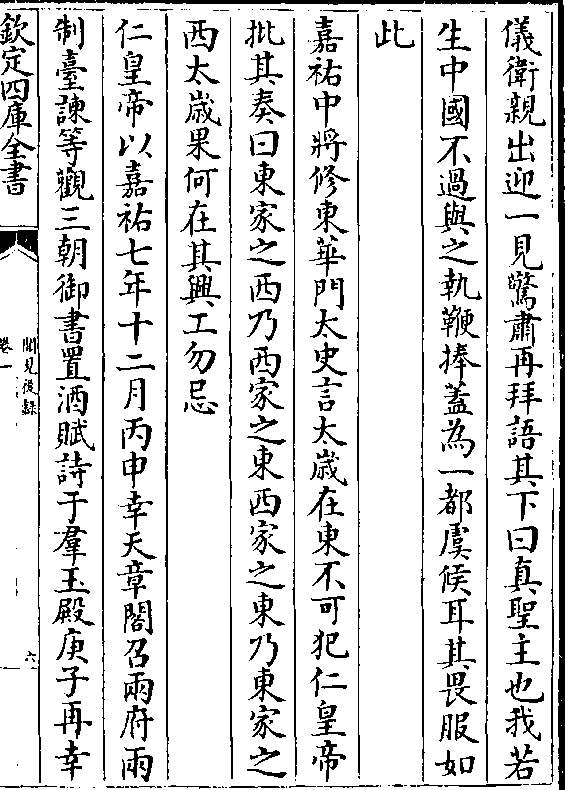 儀衛親出迎一見驚肅再拜語其下曰真聖主也我若
生中國不過與之執鞭捧蓋為一都虞候耳其畏服如
此
嘉祐中將修東華門太史言太歲在東不可犯仁皇帝
批其奏曰東家之西乃西家之東西家之東乃東家之
西太歲果何在其興工勿忌
仁皇帝以嘉祐七年十二月丙申幸天章閣召兩府兩
制臺諫等觀三朝御書置酒賦詩于羣玉殿庚子再幸
欽定四庫全書
聞見後錄
卷一
六